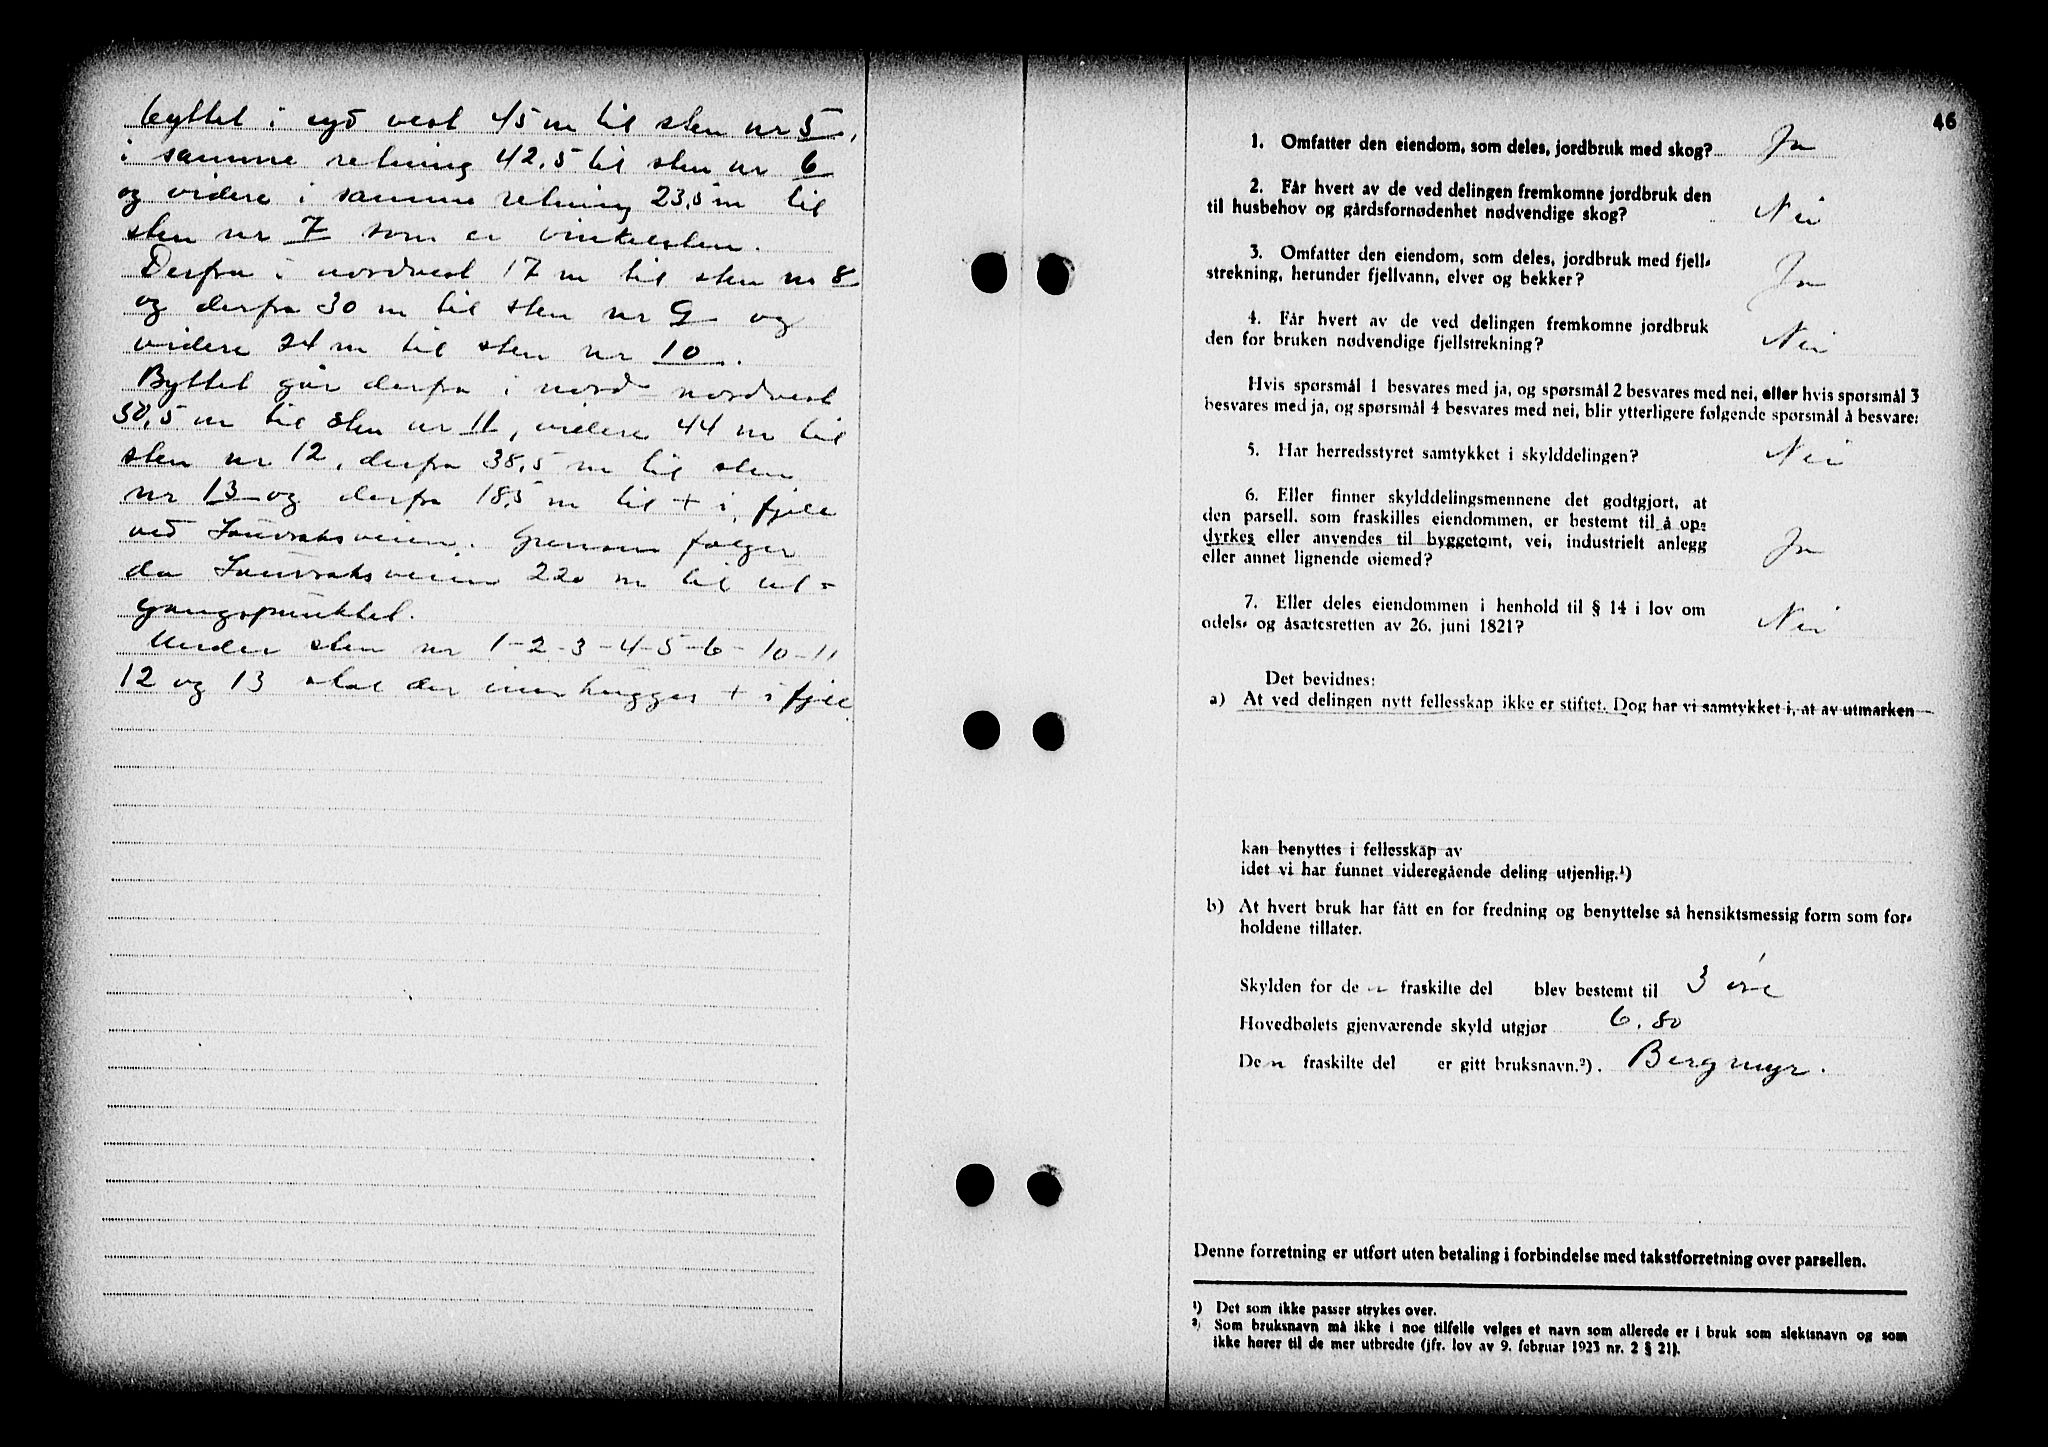 byttet i syd vest 45 m til sten nr 5,
i samme retning 42,5 til sten nr 6
og videre i samme retning 23,5 m til
sten nr 7 som er vinkelsten.
Derfra i nordvest 17 m til sten nr 8
og derfra 30 m til sten nr 9 og
videre 24 m til sten nr 10.
Byttet går derfra i nord-nordvest
30,5 m til sten nr 11, videre 44 m til
sten nr 12, derfra 38,5 m til sten
nr 13 og derfra 18,5 m til + i fjell
ved Lauvraksveien. Grensen følger
da Lauvraksveien 220 m til ut=
gangspunktet.
Under sten nr 1-2-3-4-5-6-10-11
12 og 13 skal der være hugget + i fjell
46
1. Omfatter den eiendom, som deles, jordbruk med skog? Ja
2. Får hvert av de ved delingen fremkomne jordbruk den
til husbehov og gårdsfornødenhet nødvendige skog? Nei
3. Omfatter den eiendom, som deles, jordbruk med fjell-
strekning, herunder fjellvann, elver og bekker? Ja
4. Får hvert av de ved delingen fremkomne jordbruk
den for bruken nødvendige fjellstrekning? Nei
Hvis spørsmål 1 besvares med ja, og spørsmål 2 besvares med nei, eller hvis spørsmål 3
besvares med ja, og spørsmål 4 besvares med nei, blir ytterligere følgende spørsmål å besvare:
5. Har herredsstyret samtykket i skylddelingen? Nei
6. Eller finner skylddelingsmennene det godtgjort, at
den parsell. som fraskilles eiendommen, er bestemt til å op-
dyrkes eller anvendes til byggetomt, vei, industrielt anlegg
eller annet lignende øiemed? Ja
7. Eller deles eiendommen i henhold til § 14 i lov om
odels- og åsætesretten av 26. juni 1821? Nei
Det bevidnes:
a) At ved delingen nytt fellesskap ikke er stiftet. Dog har vi samtykket i, at av utmarken
kan benyttes i fellesskap av
idet vi har funnet videregående deling utjenlig.¹)
b) At hvert bruk har fått en for fredning og benyttelse så hensiktsmessig form som for-
holdene tillater.
Skylden for den fraskilte del blev bestemt til 3 øre
Hovedbølets gjenværende skyld utgjør 6.80
Den fraskilte del er gitt bruksnavn.²). Bergmyr.
Denne forretning er utført uten betaling i forbindelse med takstforretning over parsellen.
¹) Det som ikke passer strykes over.
²) Som bruksnavn må ikke i noe tilfelle velges et navn som allerede er i bruk som slektsnavn og som
ikke hører til de mer utbredte (jfr. lov av 9. februar 1923 nr. 2 § 21).